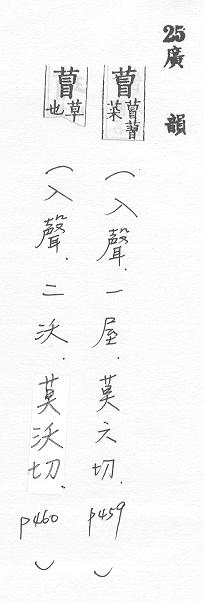 25廣韻
萺 萺萺菜（入聲．一屋．莫六切．p459）
萺 草也（入聲．二沃．莫沃切．p460）